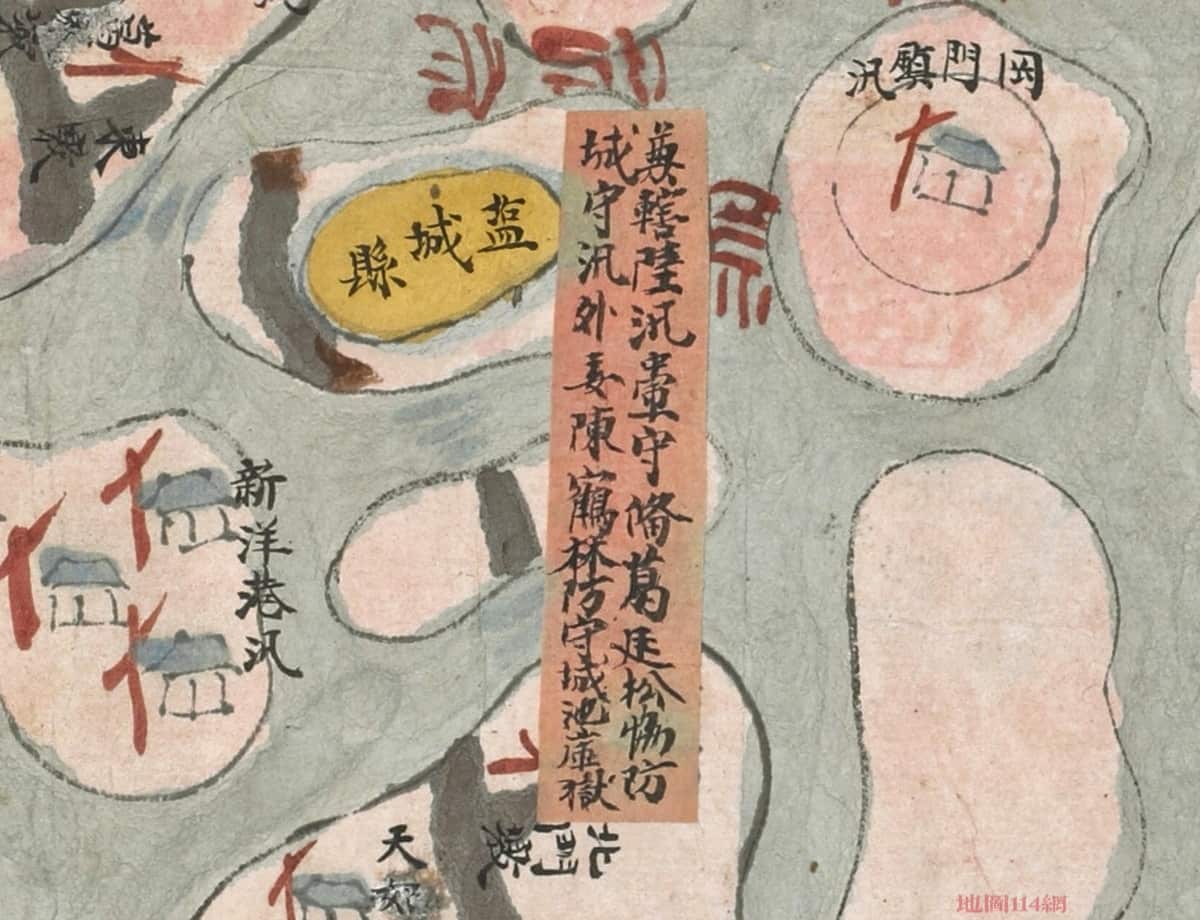 岡門鎮汛
兼轄陸汛臺守俻葛廷松協防
城守汛外委陳鶴林防守城池庫獄
盐城縣
新洋港汛
東墩
北門墩
天
地圖114網